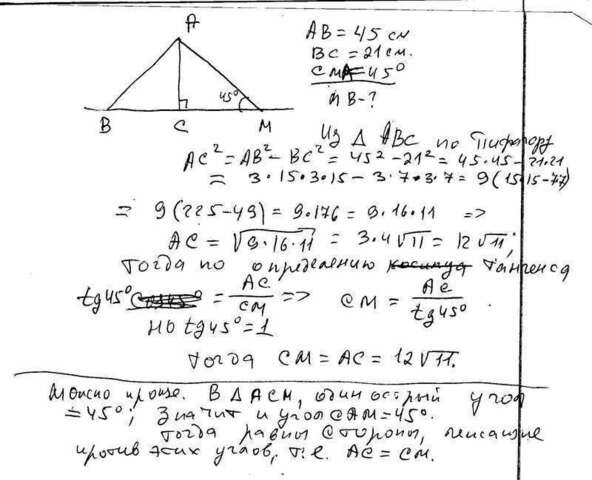 A
45°
B C M
AB = 45 см
BC = 21 см.
CMA = 45°
MB - ?
Из Δ ABC по Пифагору
AC² = AB² - BC² = 45² - 21² = 45·45 - 21·21
= 3·15·3·15 - 3·7·3·7 = 9(15·15-77)
= 9(225-49) = 9·176 = 9·16·11 =>
AC = √9·16·11 = 3·4√11 = 12√11;
Тогда по определению косинуса тангенса
tg45° = AC/CM => CM = AC/tg45°.
Но tg45° = 1
Тогда CM = AC = 12√11.
Можно проще. В Δ ACM, один острый угол
= 45°; Значит и угол CAM = 45°.
Тогда равны стороны, лежащие
против этих углов, т.е. AC = CM.